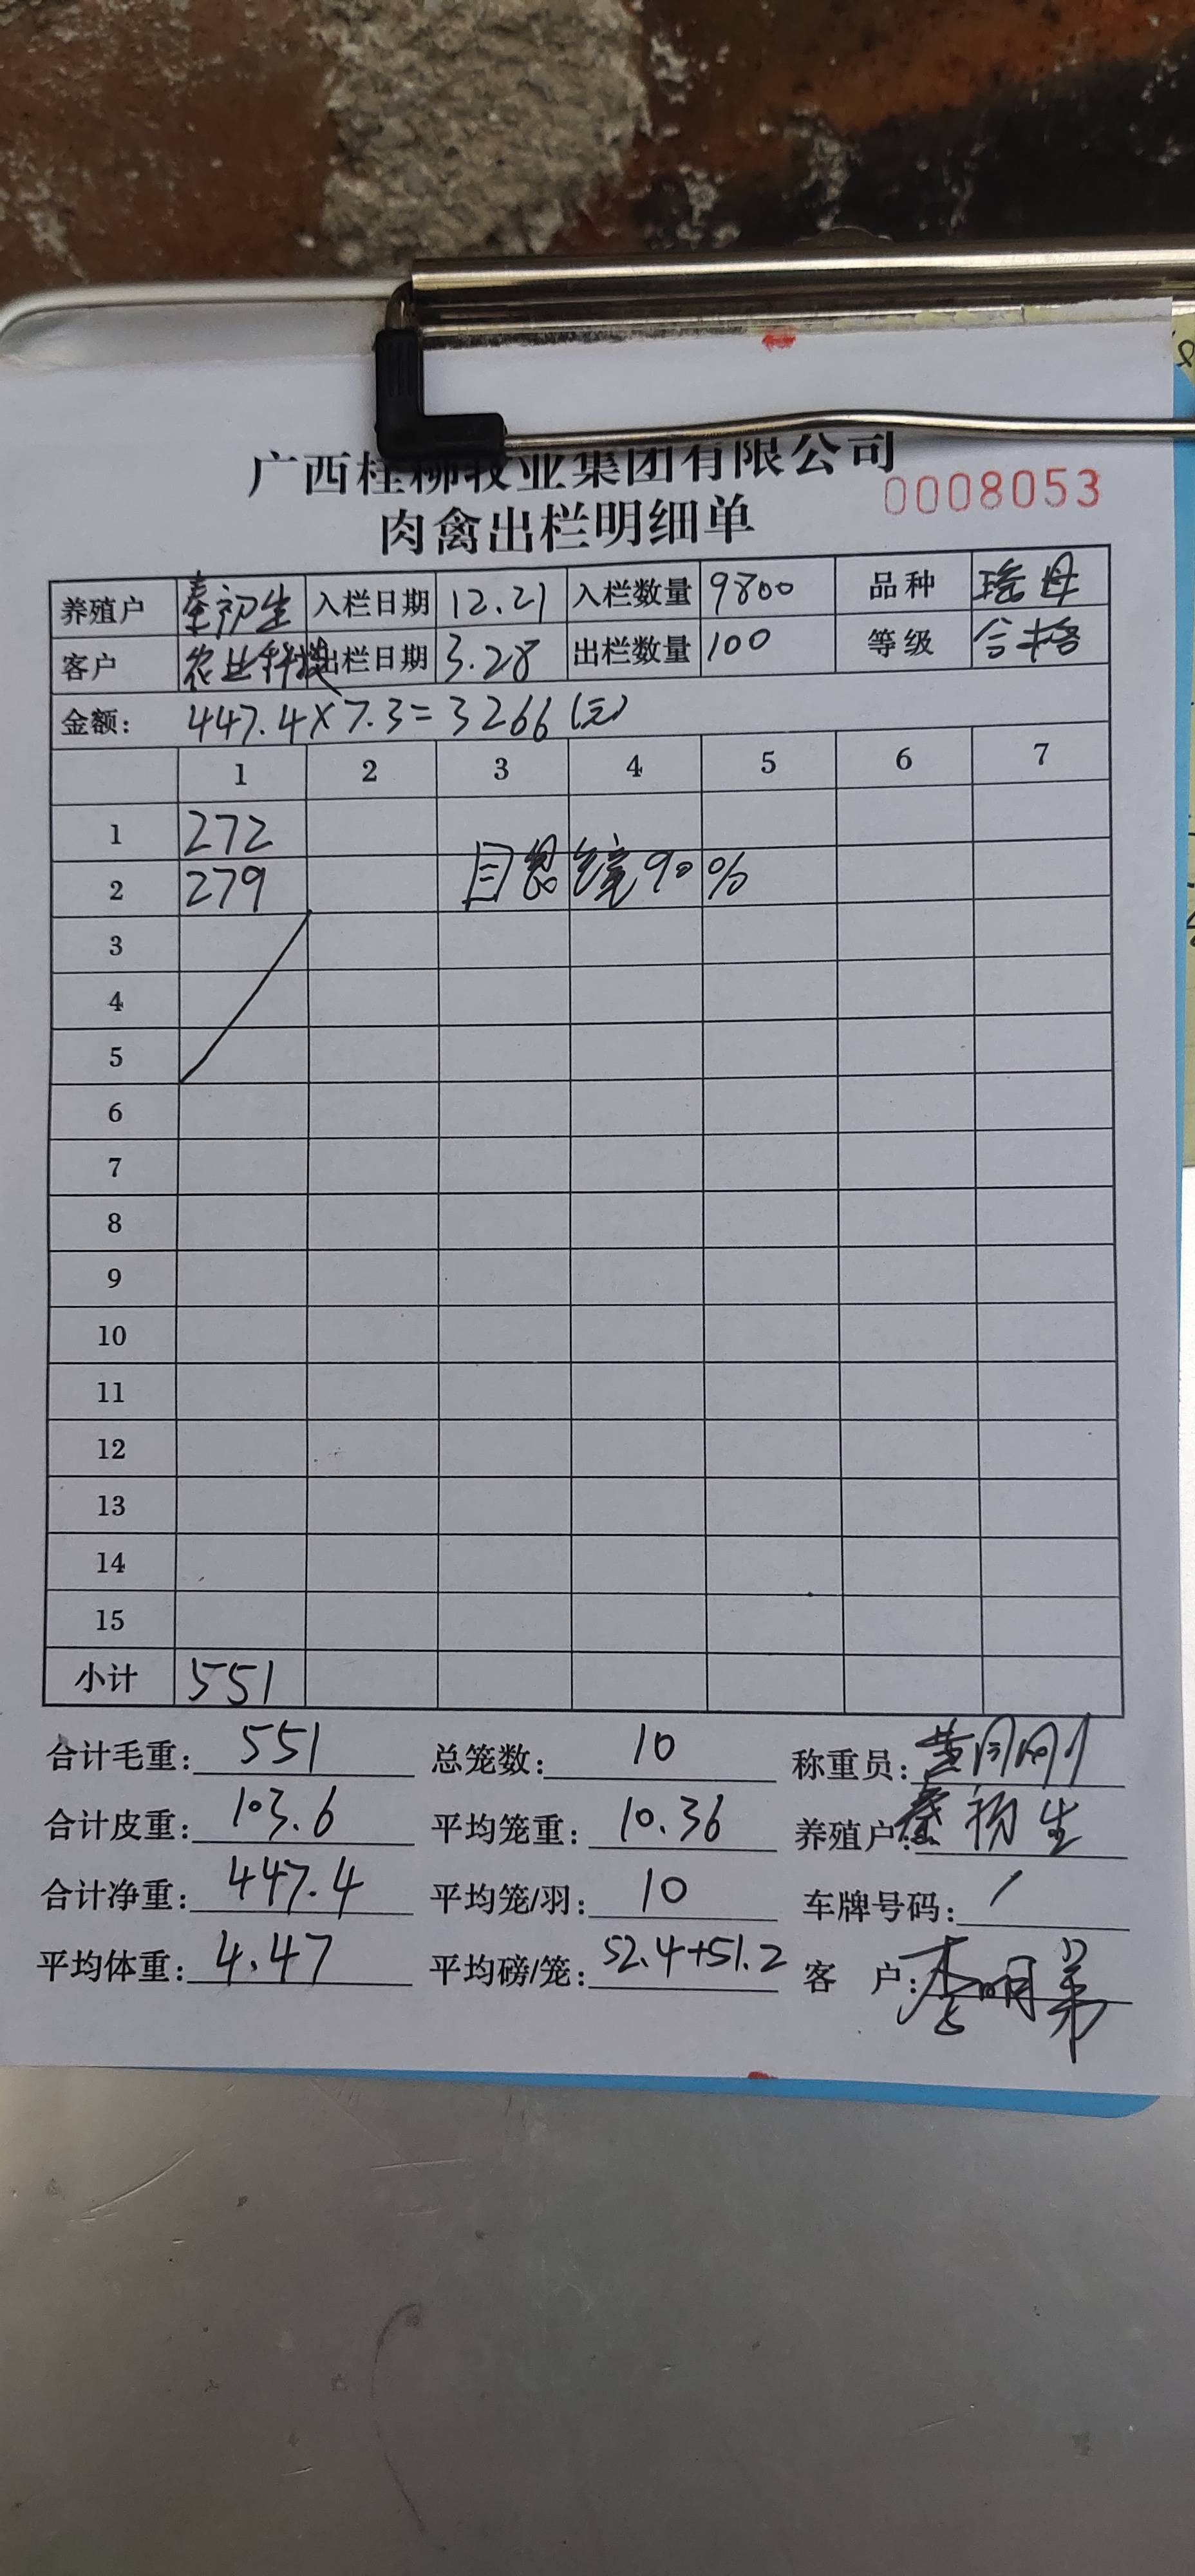 广西桂柳牧业集团有限公司
0008053
肉禽出栏明细单
养殖户 秦初生 入栏日期 12.21 入栏数量 9800 品种 瑶母
客户 农业科技 出栏日期 3.28 出栏数量 100 等级 合格
金额: 447.4×7.3=3266(元)
1 2 3 4 5 6 7
1 272
2 279 90%
3
4
5
6
7
8
9
10
11
12
13
14
15
小计 551
合计毛重: 551 总笼数: 10 称重员:
合计皮重: 103.6 平均笼重: 10.36 养殖户: 秦初生
合计净重: 447.4 平均笼/羽: 10 车牌号码: /
平均体重: 4.47 平均磅/笼: 52.4+51.2 客 户: 李明弟